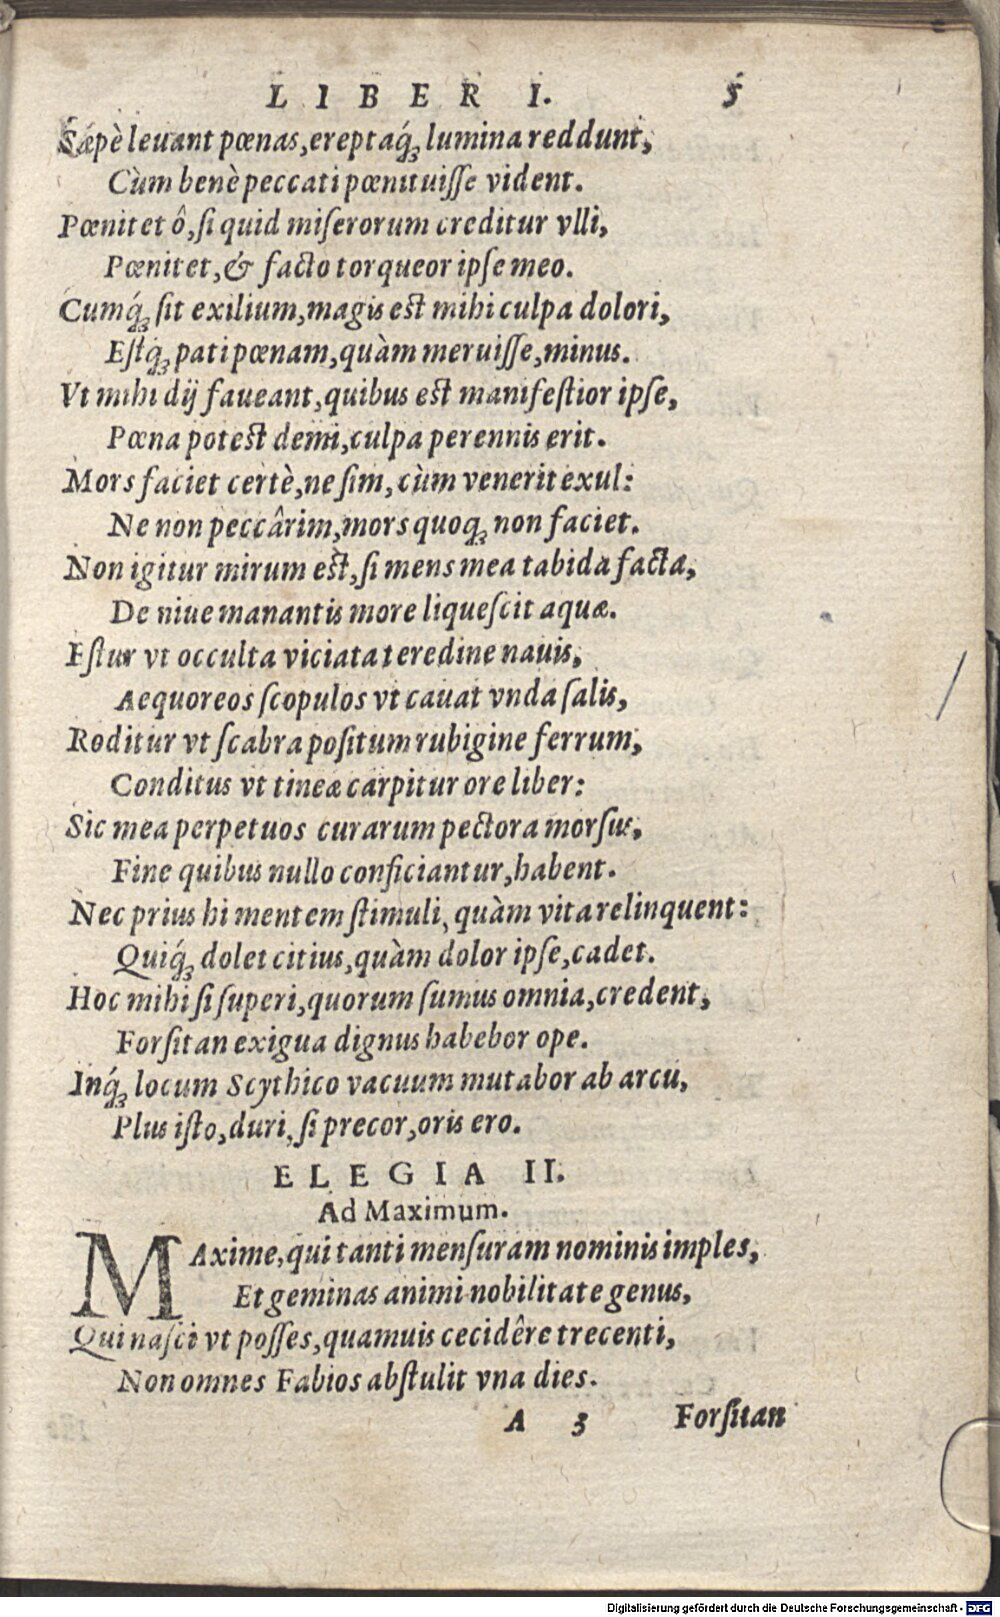 LIBER I. 5
Sæpè leuant pœnas, ereptaq́; lumina reddunt,
Cùm benè peccati pœnituiſſe vident.
Pœnitet ô, ſi quid miſerorum creditur vlli,
Pœnitet, & facto torqueor ipſe meo.
Cumq́; ſit exilium, magis est mihi culpa dolori,
Eſtq́; pati pœnam, quàm meruiſſe, minus.
Vt mihi dij faueant, quibus est manifeſtior ipſe,
Pœna potest demi, culpa perennis erit.
Mors faciet certè, ne ſim, cùm venerit exul:
Ne non peccârim, mors quoq; non faciet.
Non igitur mirum est, ſi mens mea tabida facta,
De niue manantis more liqueſcit aquæ.
Eſtur vt occulta viciata teredine nauis,
Aequoreos ſcopulos vt cauat vnda ſalis,
Roditur vt ſcabra poſitum rubigine ferrum,
Conditus vt tineæ carpitur ore liber:
Sic mea perpetuos curarum pectora morſus,
Fine quibus nullo conficiantur, habent.
Nec prius hi mentem ſtimuli, quàm vita relinquent:
Quiq́; dolet citius, quàm dolor ipſe, cadet.
Hoc mihi ſi ſuperi, quorum ſumus omnia, credent,
Forſitan exigua dignus habebor ope.
Inq́; locum Scythico vacuum mutabor ab arcu,
Plus iſto, duri, ſi precor, oris ero.
ELEGIA II.
Ad Maximum.
MAxime, qui tanti menſuram nominis imples,
Et geminas animi nobilitate genus,
Qui naſci vt poſſes, quamuis cecidêre trecenti,
Non omnes Fabios abſtulit vna dies.
A 3 Forſitan
Digitalisierung gefördert durch die Deutsche Forschungsgemeinschaft - DFG